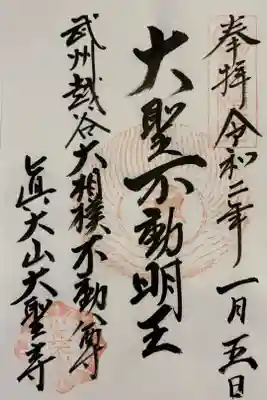 奉拝 令和二年一月五日
大聖不動明王
武州越谷大相模不動尊
眞大山大聖寺